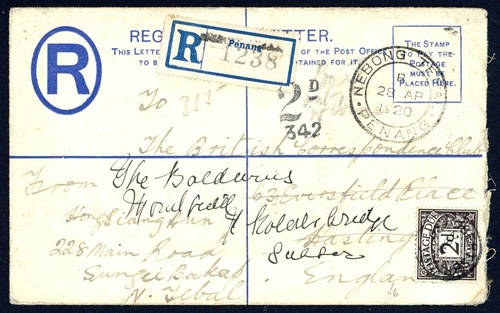 REG TTER.
THIS LETTER OF THE POST OFFICE
TO B TAINED FOR IT.
THE STAMP
TO PAY THE
POSTAGE
MUST BE
PLACED HERE.
R
R Penang
1238
NEBONG TEBAL
B
28 AP
1920
PENANG
2D
342
To
The British Correspondence Club
63 Eversfield Place
Hastings
England
From
Hong Siang Kun
228 Main Road
Sungei Bakab
N. Tebal
The Baldwins
Robertsbridge
Sussex
POSTAGE DUE
2d